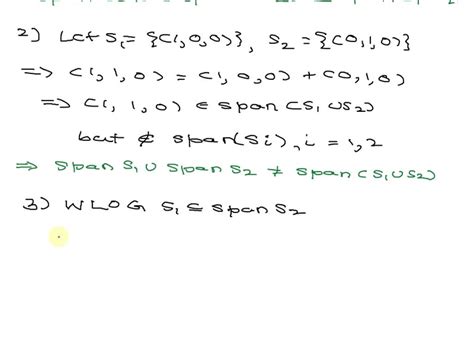 2) Let S₁ = {(1,0,0)}, S₂ = {(0,1,0)}
=> (1,1,0) = (1,0,0) + (0,1,0)
=> (1,1,0) ∈ span(S₁∪S₂)
but ∉ span(Si), i = 1,2
=> span S₁ ∪ span S₂ ≠ span(S₁∪S₂)
3) WLOG S₁ ⊆ span S₂